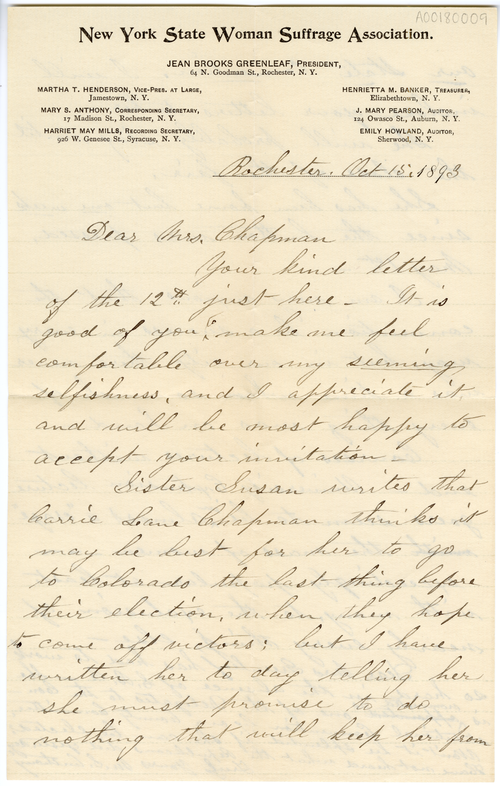 A00180009
New York State Woman Suffrage Association.
JEAN BROOKS GREENLEAF, PRESIDENT,
64 N. Goodman St., Rochester, N. Y.
MARTHA T. HENDERSON, VICE-PRES. AT LARGE,
Jamestown, N. Y.
MARY S. ANTHONY, CORRESPONDING SECRETARY,
17 Madison St., Rochester, N. Y.
HARRIET MAY MILLS, RECORDING SECRETARY,
926 W. Genesee St., Syracuse, N. Y.
HENRIETTA M. BANKER, TREASURER,
Elizabethtown, N. Y.
J. MARY PEARSON, AUDITOR,
124 Owasco St., Auburn, N. Y.
EMILY HOWLAND, AUDITOR,
Sherwood, N. Y.
Rochester. Oct 15, 1893
Dear Mrs. Chapman
Your kind letter
of the 12th just here - It is
good of you to make me feel
comfortable over my seeming
selfishness, and I appreciate it
and will be most happy to
accept your invitation -
Sister Susan writes that
Carrie Lane Chapman thinks it
may be best for her to go
to Colorado the last thing before
their election, when they hope
to come off victors; but I have
written her to day telling her
she must promise to do
nothing that will keep her from